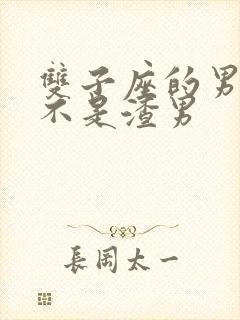 雙子座的男
不是渣男
長閑太一